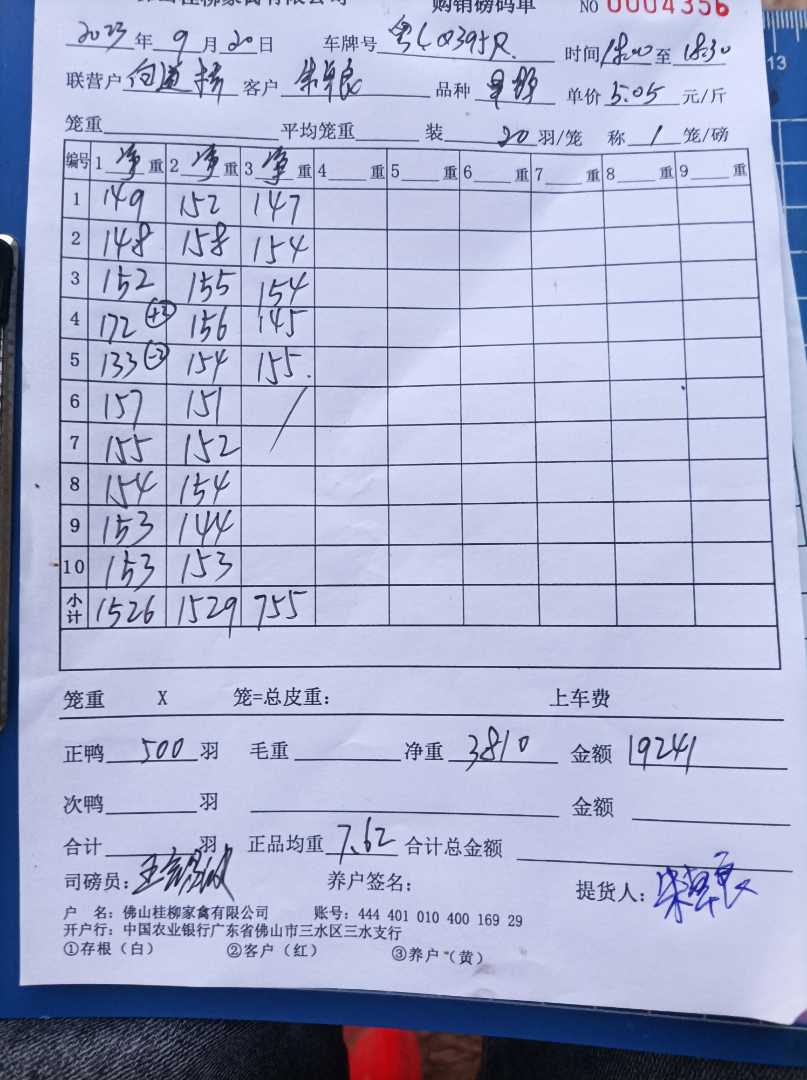 佛山桂柳家禽有限公司 购销磅码单 NO 0004356
2023年9月20日 车牌号 粤 时间18:00至18:30
联营户 客户 朱卓良 品种 单价 5.05 元/斤
笼重 平均笼重 装 20 羽/笼 称 1 笼/磅
编号 1 净 重 2 净 重 3 净 重 4 重 5 重 6 重 7 重 8 重 9 重
1 149 152 147
2 148 158 154
3 152 155 154
4 172 +2 156 145
5 133 -2 154 155.
6 157 151 /
7 155 152
8 154 154
9 153 144
10 153 153
小计 1526 1529 755
笼重 X 笼=总皮重: 上车费
正鸭 500 羽 毛重 净重 3810 金额 19241
次鸭 羽 金额
合计 羽 正品均重 7.62 合计总金额
司磅员: 养户签名: 提货人: 朱卓良
户 名: 佛山桂柳家禽有限公司 账号: 444 401 010 400 169 29
开户行: 中国农业银行广东省佛山市三水区三水支行
①存根(白) ②客户(红) ③养户(黄)